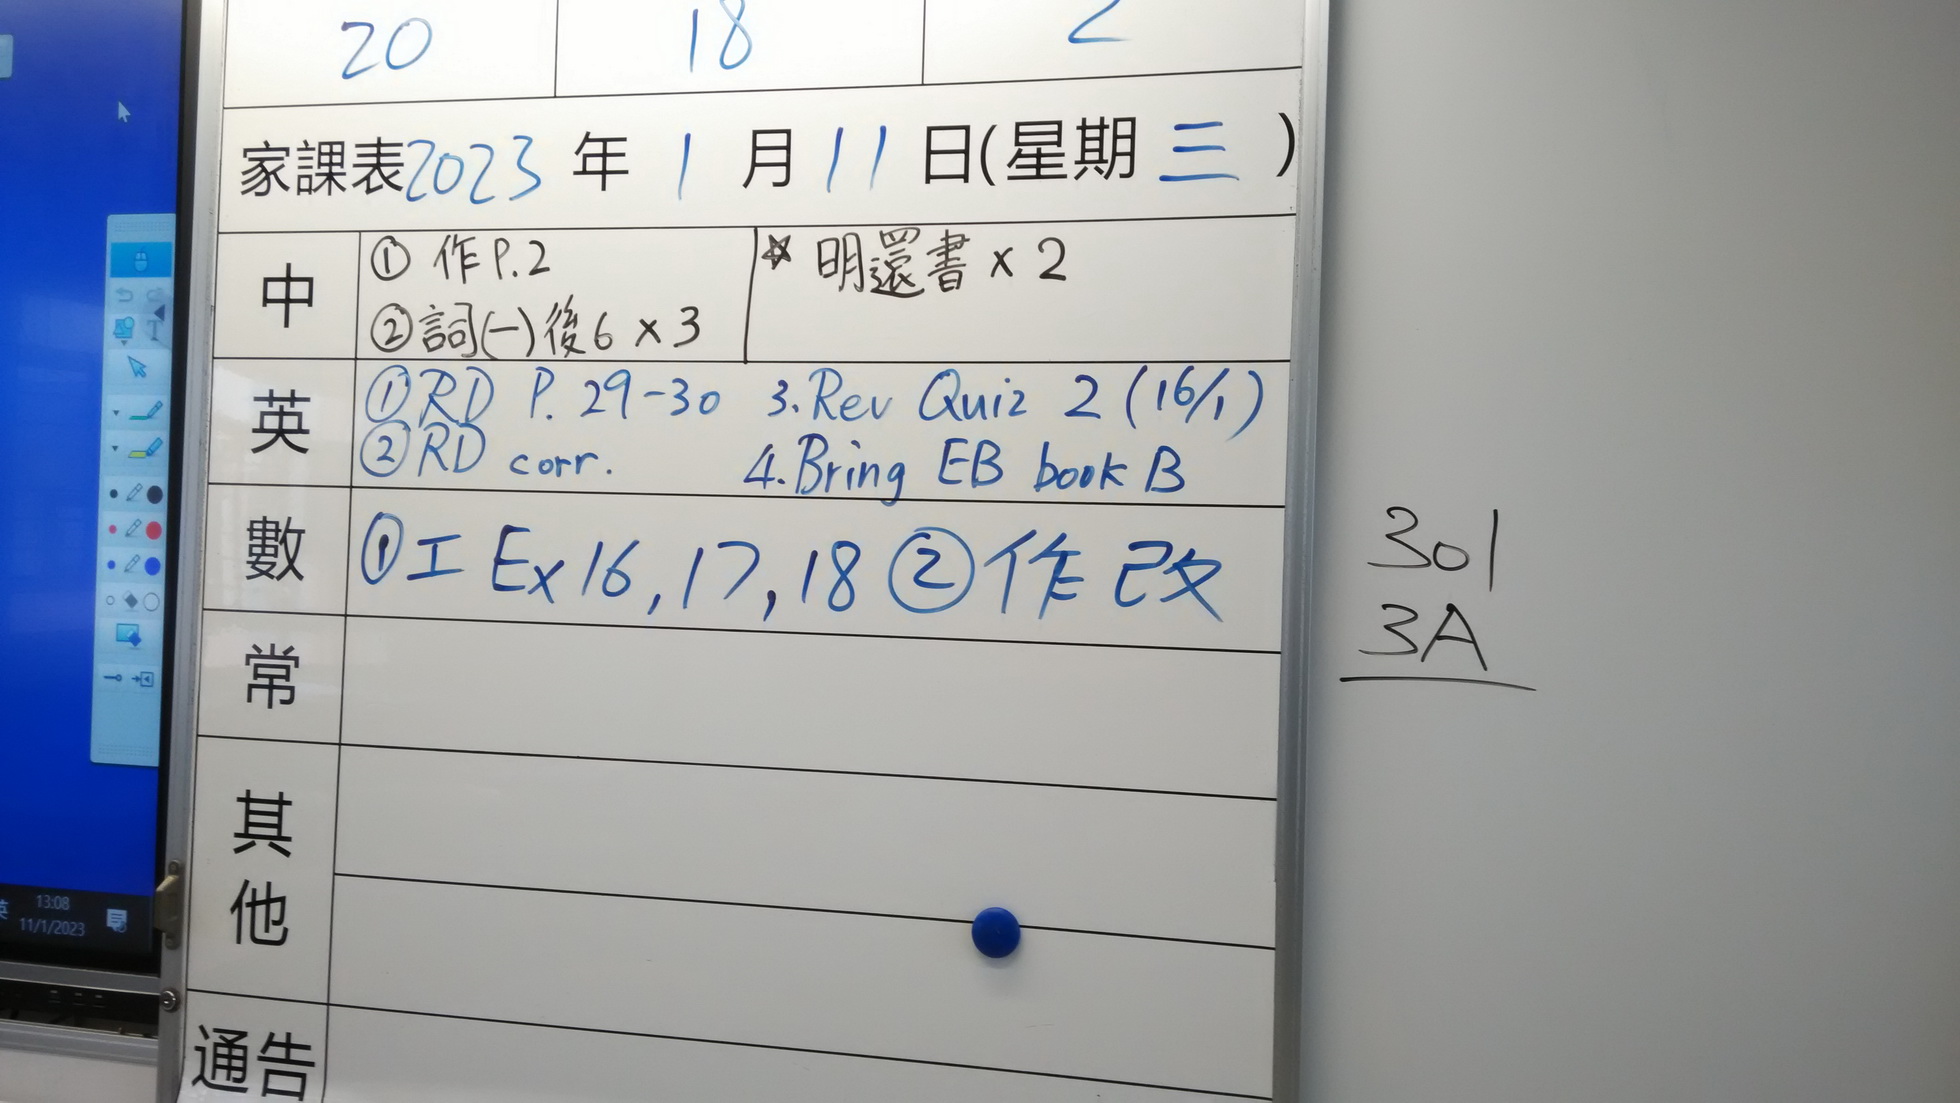 20 18 2
家課表 2023 年 1 月 11 日(星期 三 )
中
① 作 P.2
② 詞(一) 後6 x 3
☆ 明還書 x 2
英
① RD P. 29-30 3. Rev Quiz 2 (16/1)
② RD corr. 4. Bring EB book B
數
① 工 Ex 16, 17, 18 ② 作 改
常
其他
通告
301
3A
英
13:08
11/1/2023
T